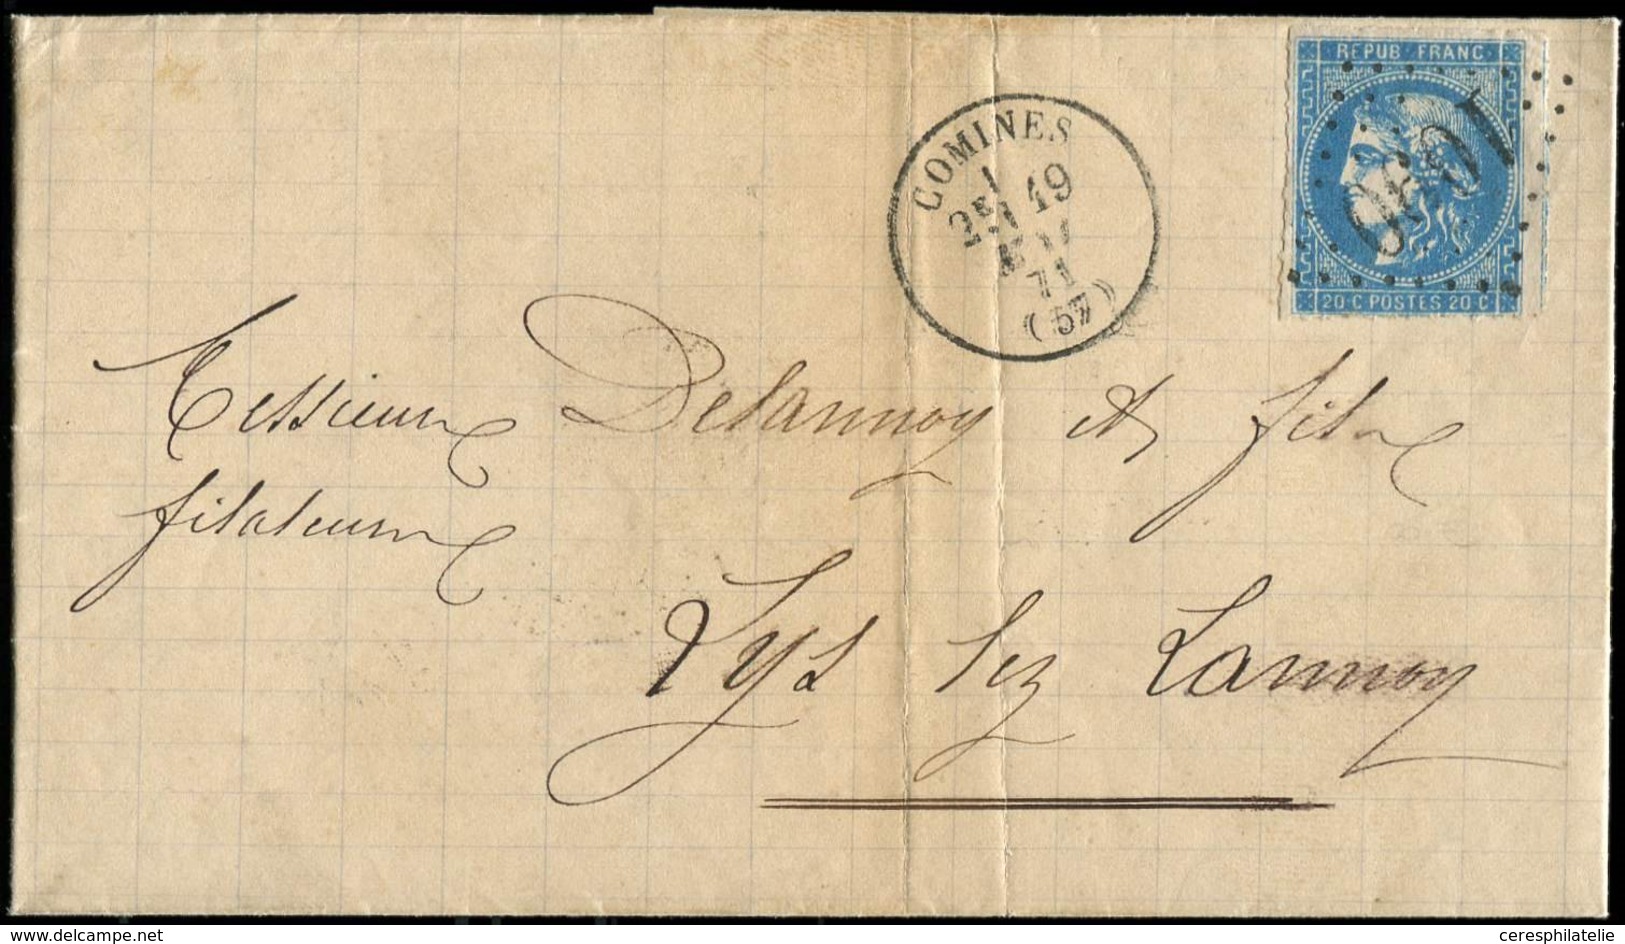 REPUB. FRANC
COMINES
19
71
(57)
20 C POSTES 20 C
Messieurs Delannoy et fils
filateurs
Lys lez Lannoy
delcampe.net
ceresphilatelie